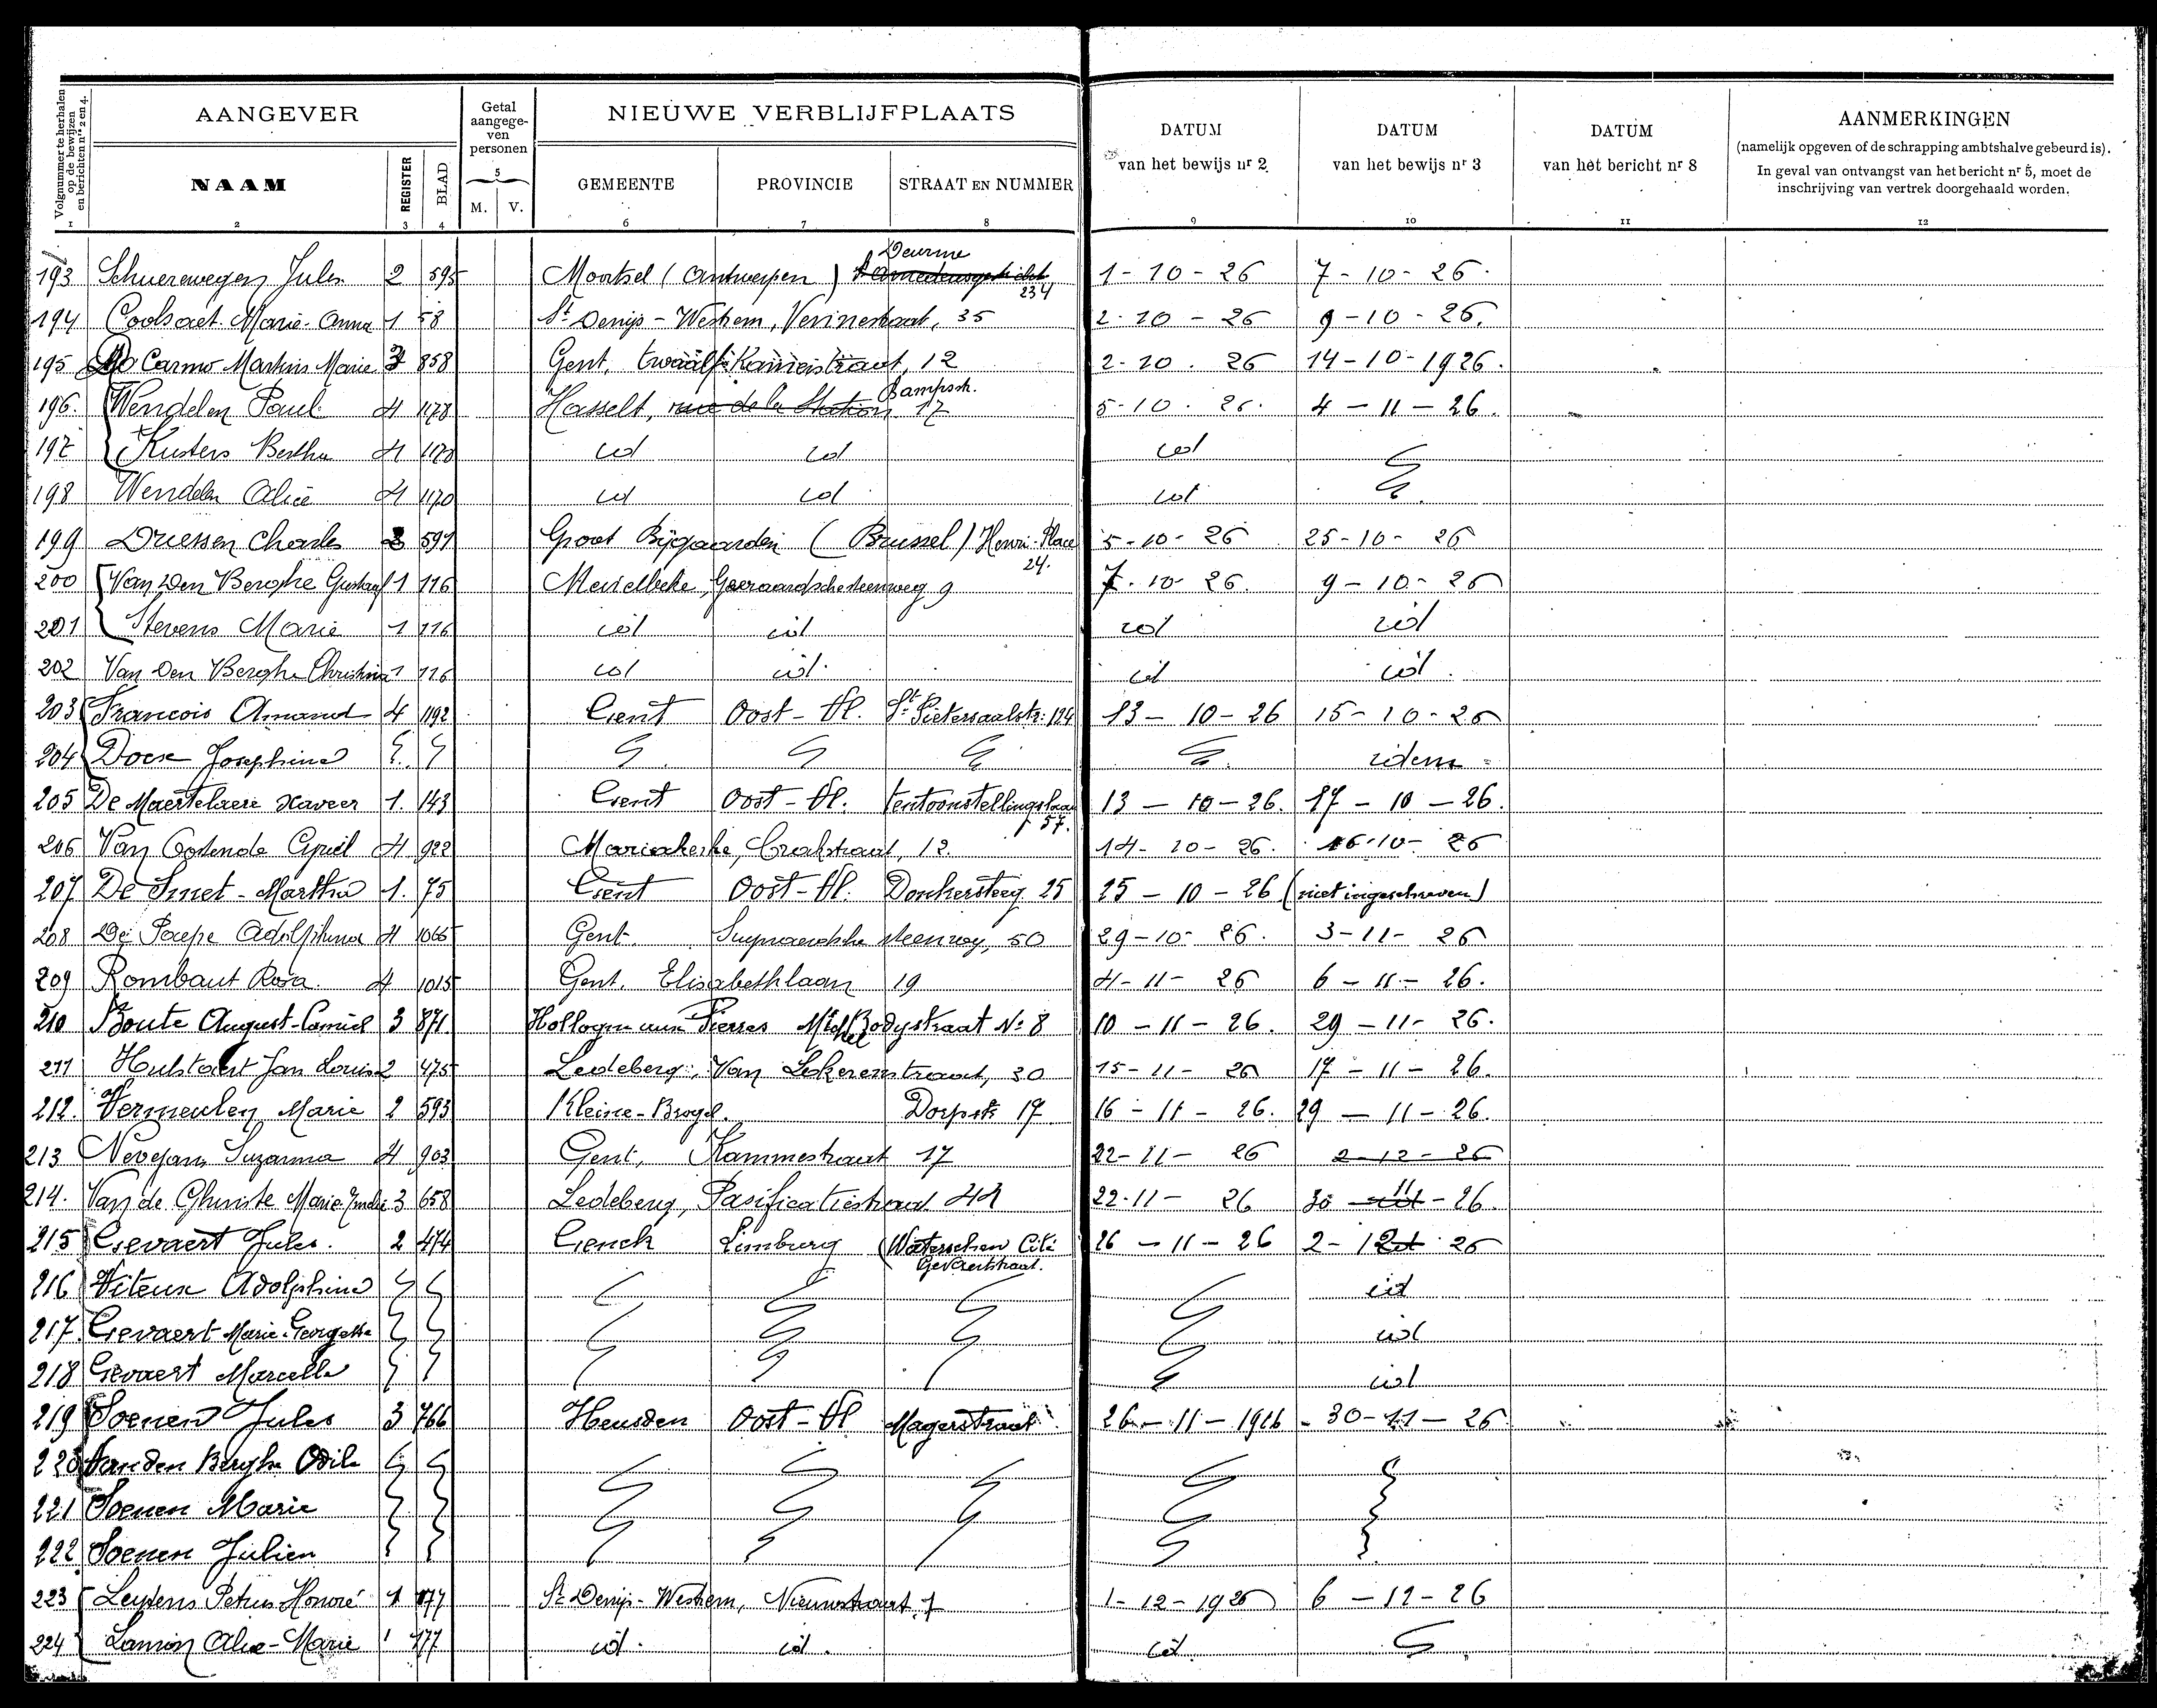 Volgnummer te herhalen op de bewijzen en berichten nrs 2 en 4.
AANGEVER
NAAM
REGISTER
BLAD
Getal aangege-ven personen
5
M. V.
NIEUWE VERBLIJFPLAATS
GEMEENTE PROVINCIE STRAAT EN NUMMER
DATUM van het bewijs nr 2
DATUM van het bewijs nr 3
DATUM van het bericht nr 8
AANMERKINGEN
(namelijk opgeven of de schrapping ambtshalve gebeurd is).
In geval van ontvangst van het bericht nr 5, moet de
inschrijving van vertrek doorgehaald worden.
1 2 3 4 6 7 8 9 10 11 12
Deurne
193 Schuerewegen Jules 2 595 Mortsel (Antwerpen) 234 1-10-26 7-10-26
194 Coolsaet Marie-Anna 1 58 St Denijs-Westrem, 35 2-10-26 9-10-26.
195 Do Carmo Martins Marie 3 858 Gent, twaalfkamerstraat, 12 2-10-26 14-10-1926.
196. Wendelen Paul 4 1170 Hasselt, rue de la Station 17 5-10-26. 4-11-26.
197 Kusters Bertha 4 1170 id id id
198 Wendelen Alice 4 1170 id id id
199 Driessen Charles 2 591 Groot Bijgaarden (Brussel) Henri-Place 24. 5-10-26 25-10-26
200 Van Den Berghe Gustaaf 1 116 Merelbeke, Geeraardschesteenweg 9 7-10-26. 9-10-26
201 Stevens Marie 1 116 id id id id
202 Van Den Berghe Christina 1 116 id id id id
203 Francois Amand 4 1192 Gent Oost-Vl. St Pietersaalstr: 124 13-10-26 15-10-26
204 Docx Josephina idem
205 De Maertelaere Xaveer 1. 143 Gent Oost-Vl. tentoonstellingslaan 57. 13-10-26. 17-10-26.
206 Van Oostende Cyriel 4 922 Mariakerke, 12. 14-10-26. 16-10-26
207 De Smet-Martha 1. 75 Gent Oost-Vl. Donkersteeg 25 25-10-26 (niet ingeschreven)
208 De Paepe Adolphina 4 1066 Gent. steenweg, 50 29-10-26. 3-11-26
209 Rombaut Rosa. 4 1015 Gent. Elisabethlaan 19 4-11-26 6-11-26.
210 Boute August-Camiel 3 871 Hollogne aux Pierres Michel Bodystraat No 8 10-11-26. 29-11-26.
211 Hulstaert Jan Louis 2 475 Ledeberg, Van Lokerenstraat, 30 15-11-26 17-11-26.
212. Vermeulen Marie 2 593 Kleine-Brogel. Dorpstr 17 16-11-26. 29-11-26.
213 Nevejans Suzanna 4 903 Gent, Kammestraat 17 22-11-26 2-12-26
214. Van de Ghinste Marie 3 658 Ledeberg, Pasificatiestraat 44 22-11-26 30-11-26.
215 Gevaert Jules. 2 474 Genck Limburg (Waterschen Cité Gevaertstraat. 26-11-26 2-12-26
216 Viteux Adolphina id
217. Gevaert Marie-Georgette id
218 Gevaert Marcella id
219 Soenen Jules 3 766 Heusden Oost-Vl Magerstraat 26-11-1926 30-11-26
220 Van den Berghe Odile
221 Soenen Marie
222 Soenen Julien
223 Leytens Petrus Honoré 1 177 St Denijs-Westrem, Nieuwstraat, 7 1-12-1926 6-12-26
224 Lamon Alice-Marie 1 177 id. id. id.